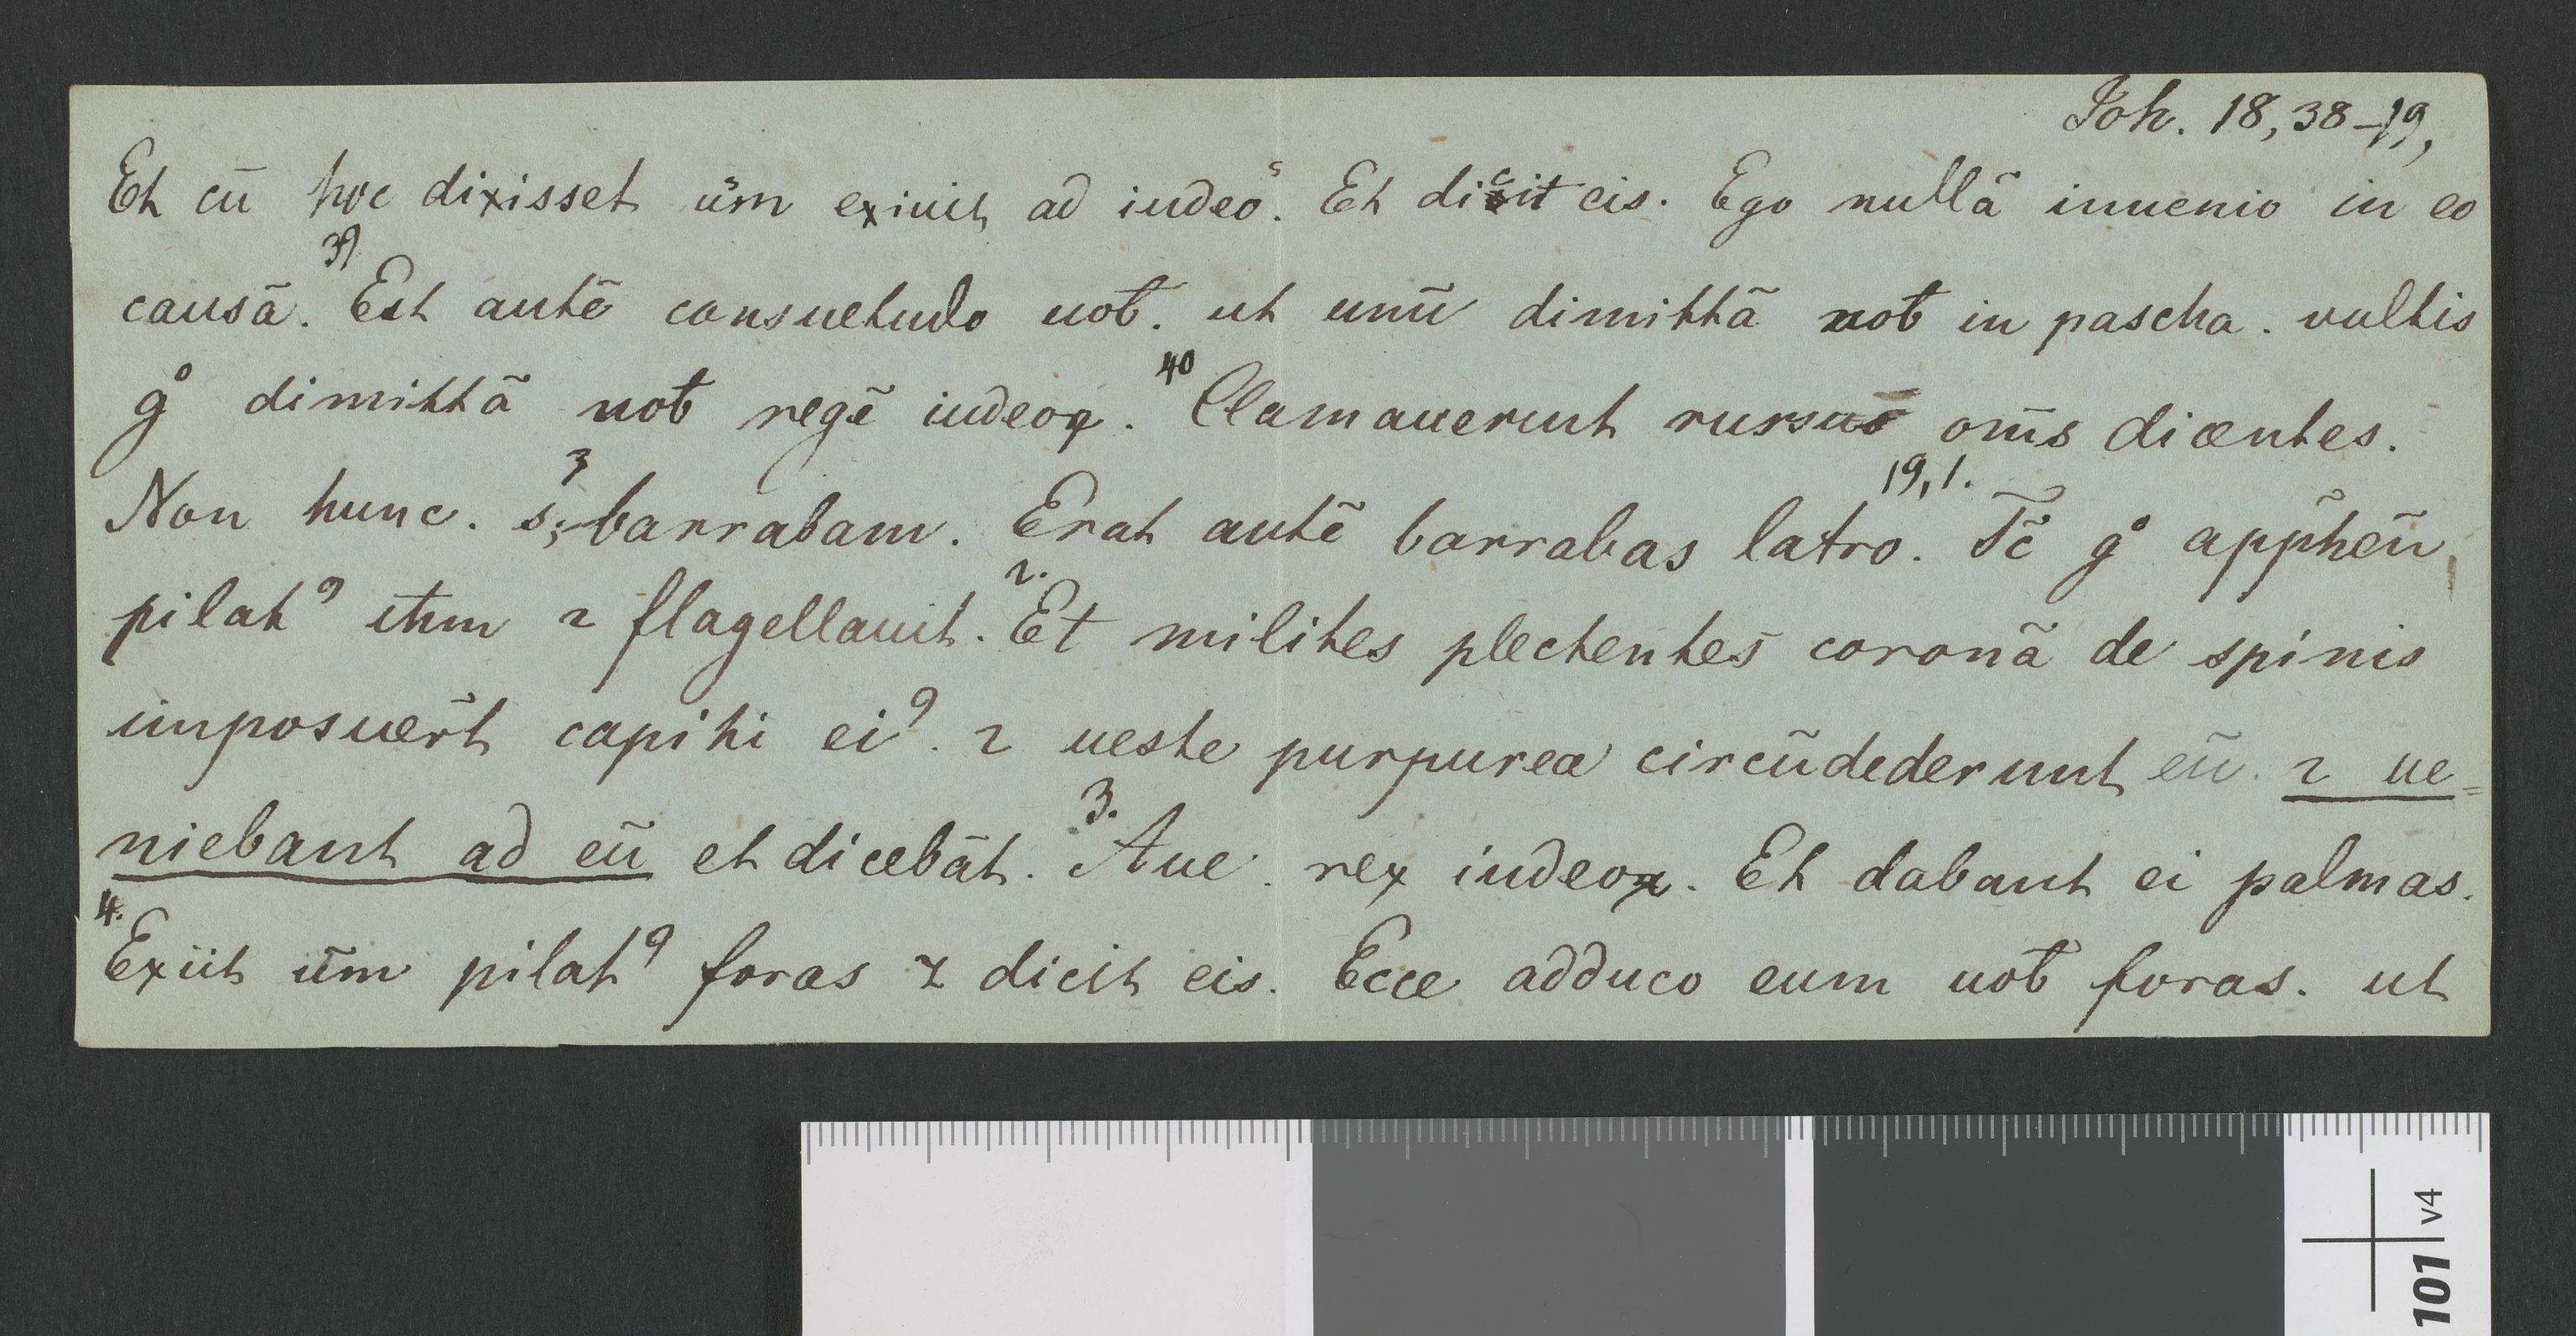 Joh. 18,38–19,
Et cū hoc dixisset ūm exiuit ad iudeoˢ. Et dicit eis. Ego nullā inuenio in eo
causā. 39 Est autē consuetudo uoƀ. ut unū dimittā uoƀ in pascha. uultis
g° dimittā uoƀ regē iudeoꝝ. 40 Clamauerunt rursū om̄s dicentes.
Non hunc. sꝫ barrabam. Erat autē barrabas latro. 19,1. T̄c g° app̃hēn
pilatꝰ ih̄m ⁊ flagellauit. 2. Et milites plectentes coronā de spinis
imposuer̄t capiti eiꝰ. ⁊ ueste purpurea circūdederunt eū. ⁊ ue=
niebant ad eū et dicebāt. 3. Aue. rex iudeoꝝ. Et dabant ei palmas.
4. Exiit ūm pilatꝰ foras ⁊ dicit eis. Ecce adduco eum uoƀ foras. ut
101 v4